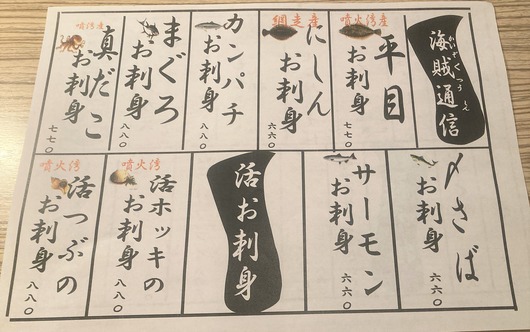 海賊通信
かいぞくつうしん
噴火湾産
平目
お刺身
七七〇
網走産
にしん
お刺身
六六〇
カンパチ
お刺身
八八〇
まぐろ
お刺身
八八〇
噴火湾産
真だこ
お刺身
七七〇
〆さば
お刺身
六六〇
サーモン
お刺身
六六〇
活お刺身
噴火湾
活ホッキの
お刺身
八八〇
噴火湾
活つぶの
お刺身
八八〇